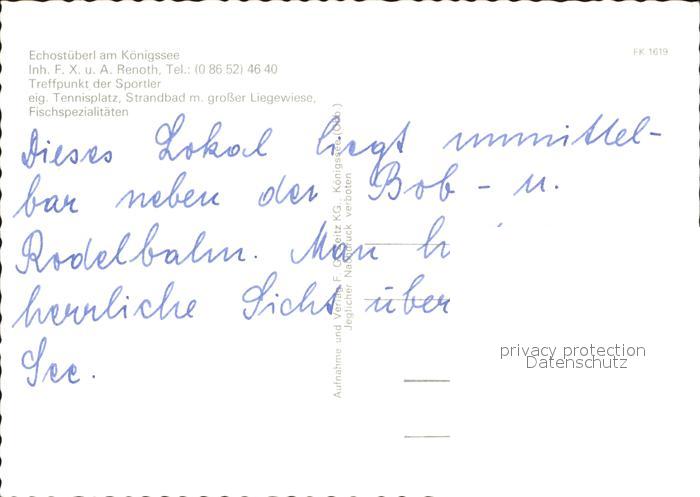 Echostüberl am Königssee
Inh. F. X. u. A. Renoth, Tel.: (0 86 52) 46 40
Treffpunkt der Sportler
eig. Tennisplatz, Strandbad m. großer Liegewiese,
Fischspezialitäten
FK 1619
Dieses Lokal liegt unmittel-
bar neben der Bob- u.
Rodelbahn. Man h
herrliche Sicht über
See.
Aufnahme und Verlag F. KG., Königssee (Obb.)
Jeglicher Nachdruck verboten
privacy protection
Datenschutz